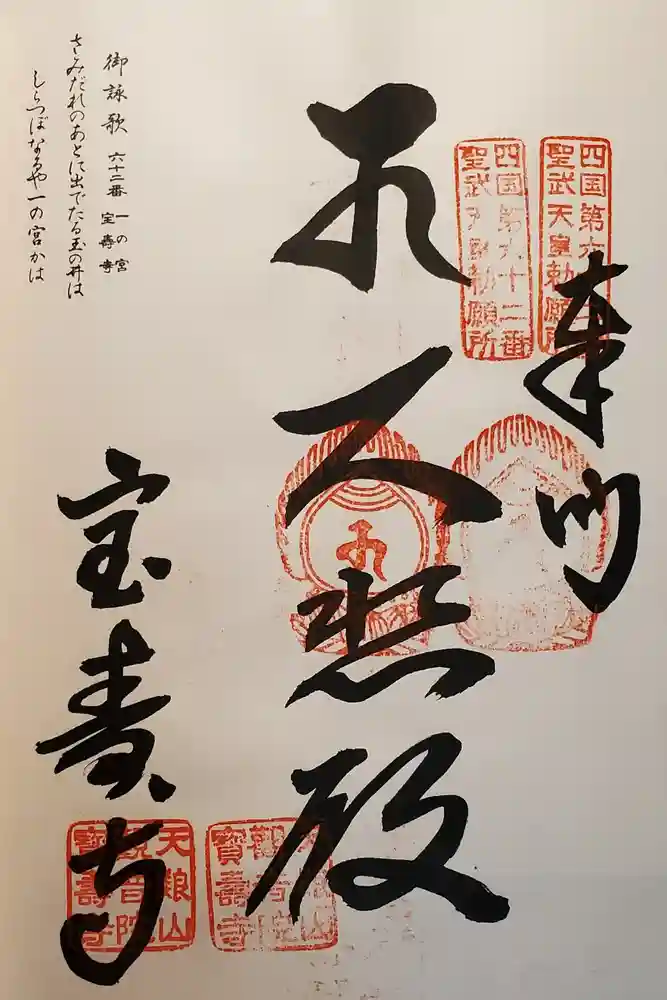 四国第六十二番
聖武天皇勅願所
奉納
四国第六十二番
聖武天皇勅願所
大悲殿
宝寿寺
天養山
觀音院
寶壽寺
天養山
觀音院
寶壽寺
御詠歌 六十二番 一の宮 宝壽寺
さみだれのあとに出でたる玉の井は
しらつぼなるや一の宮かは